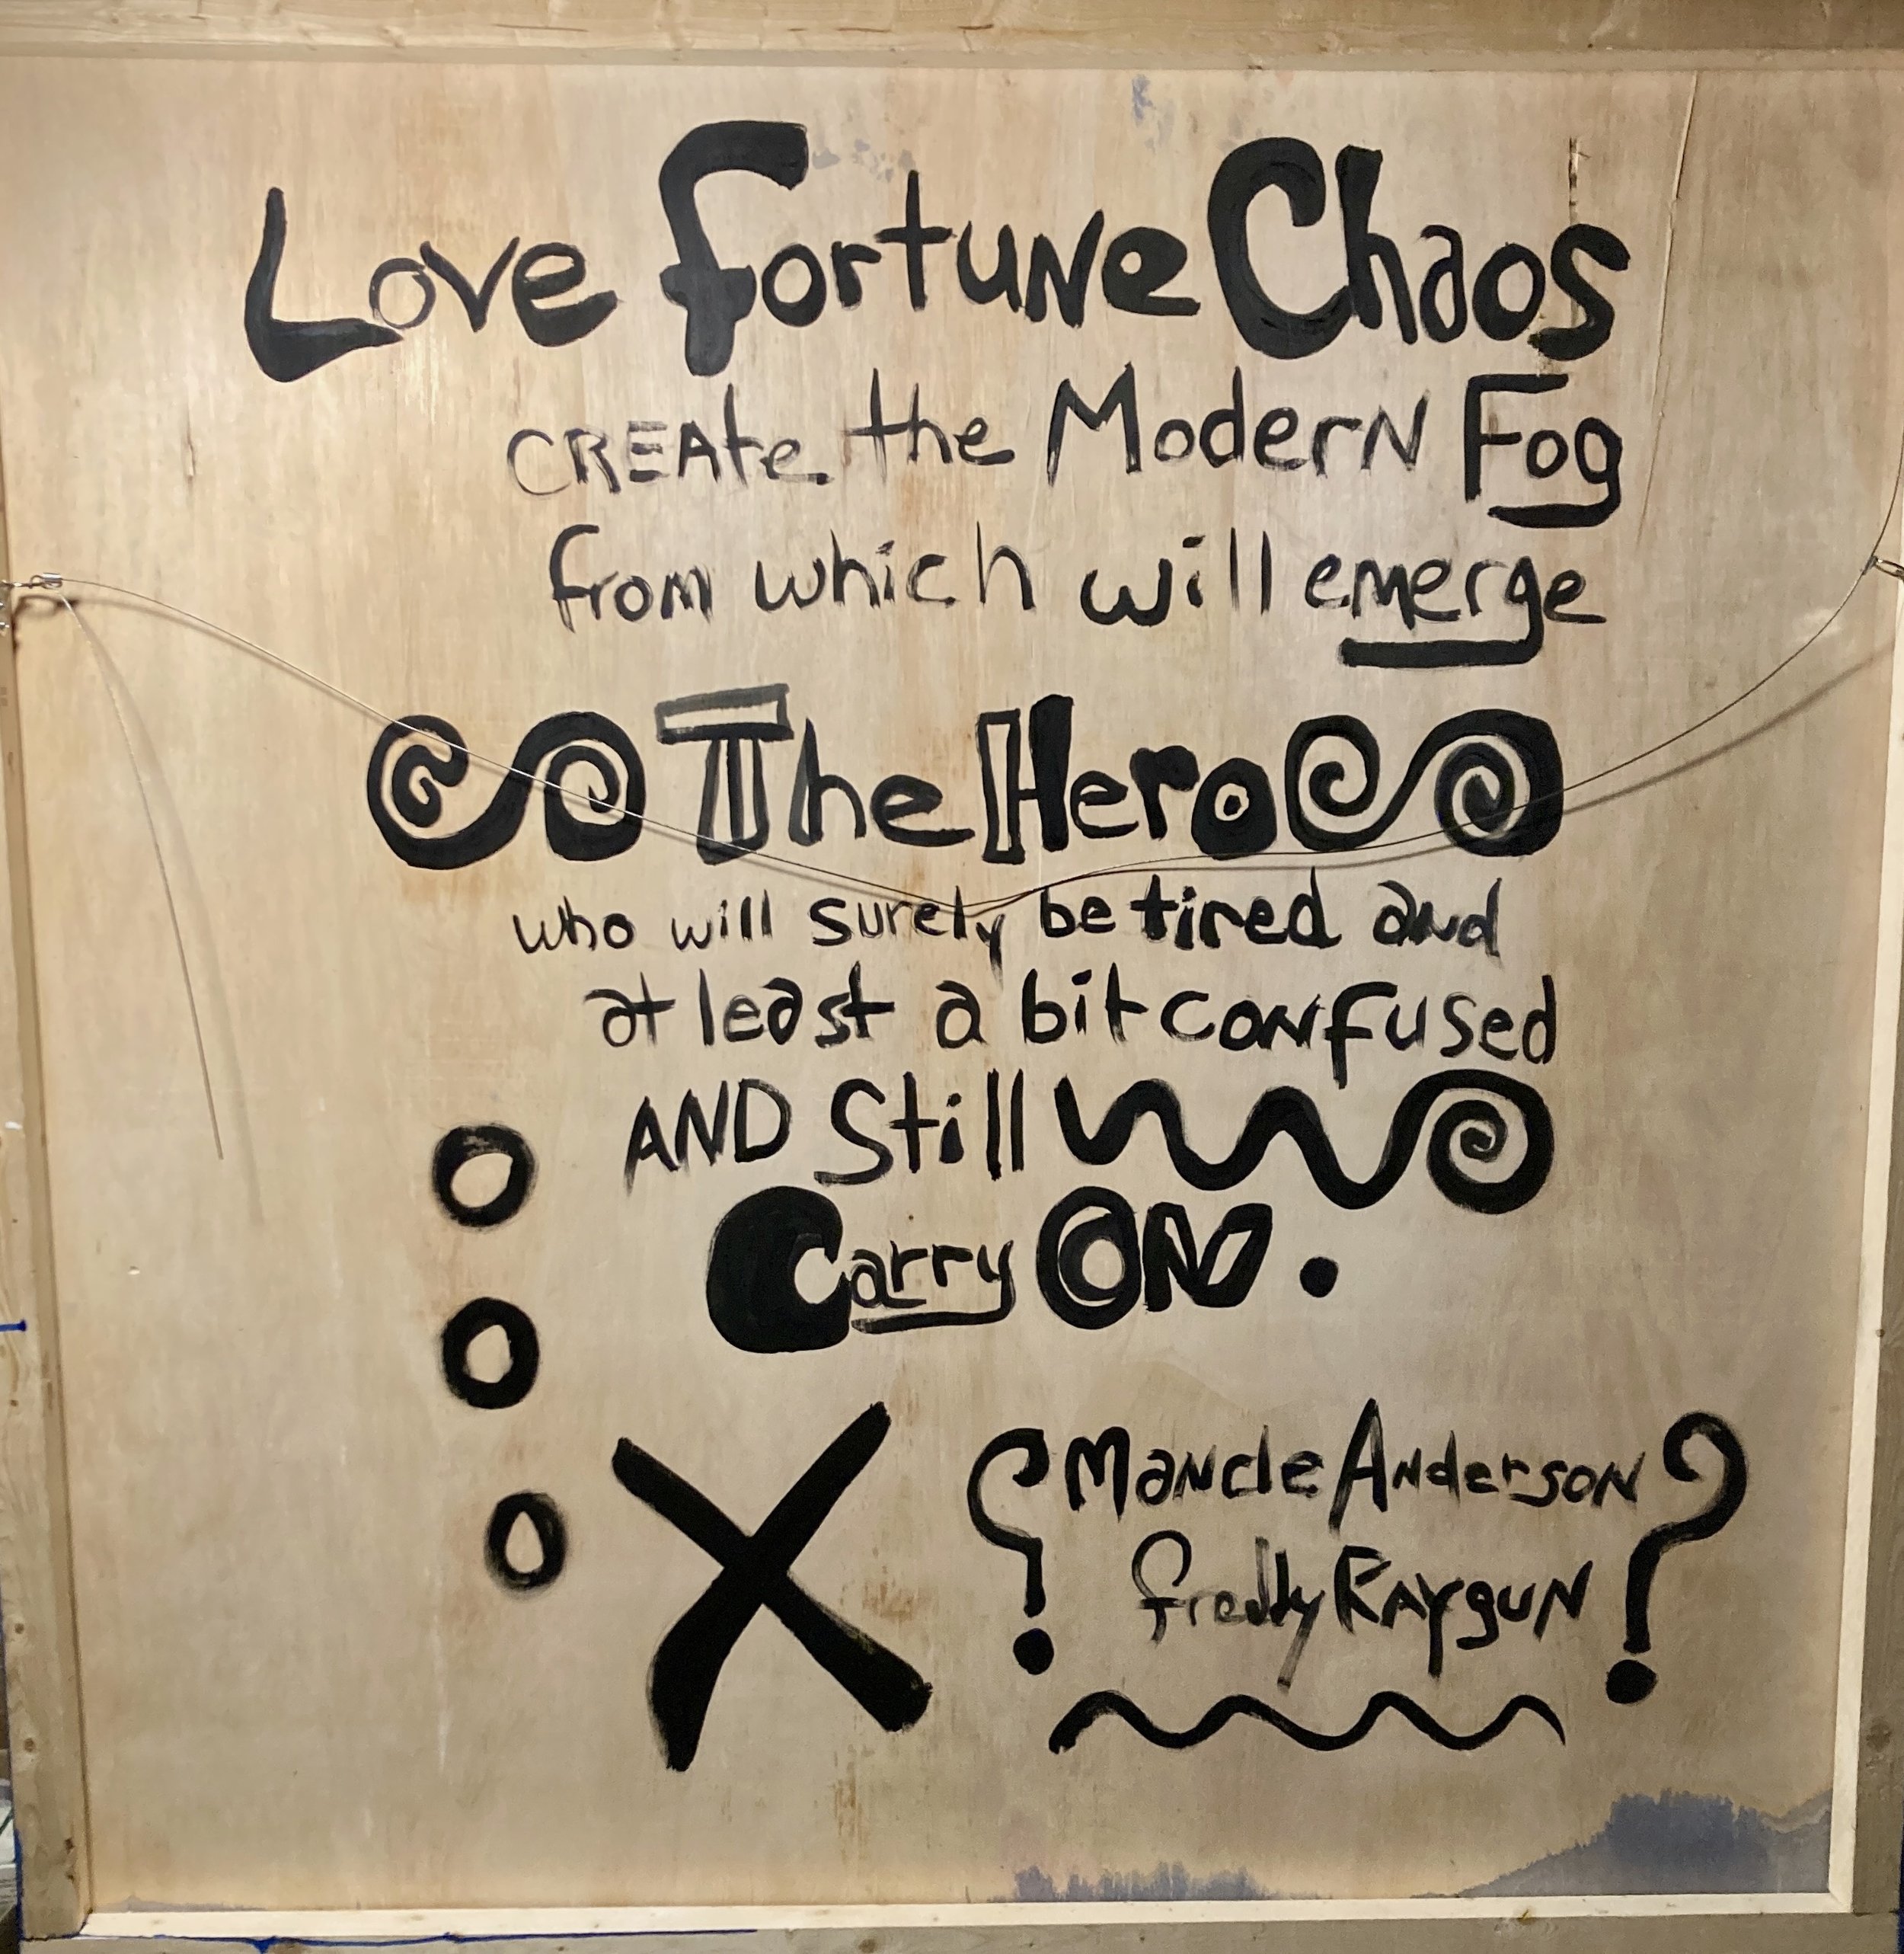 Love Fortune Chaos
CREAte the Modern Fog
from which will emerge
The Hero
who will surely be tired and
at least a bit confused
AND Still
Carry ON.
? Mancle Anderson ?
freddy RAygun